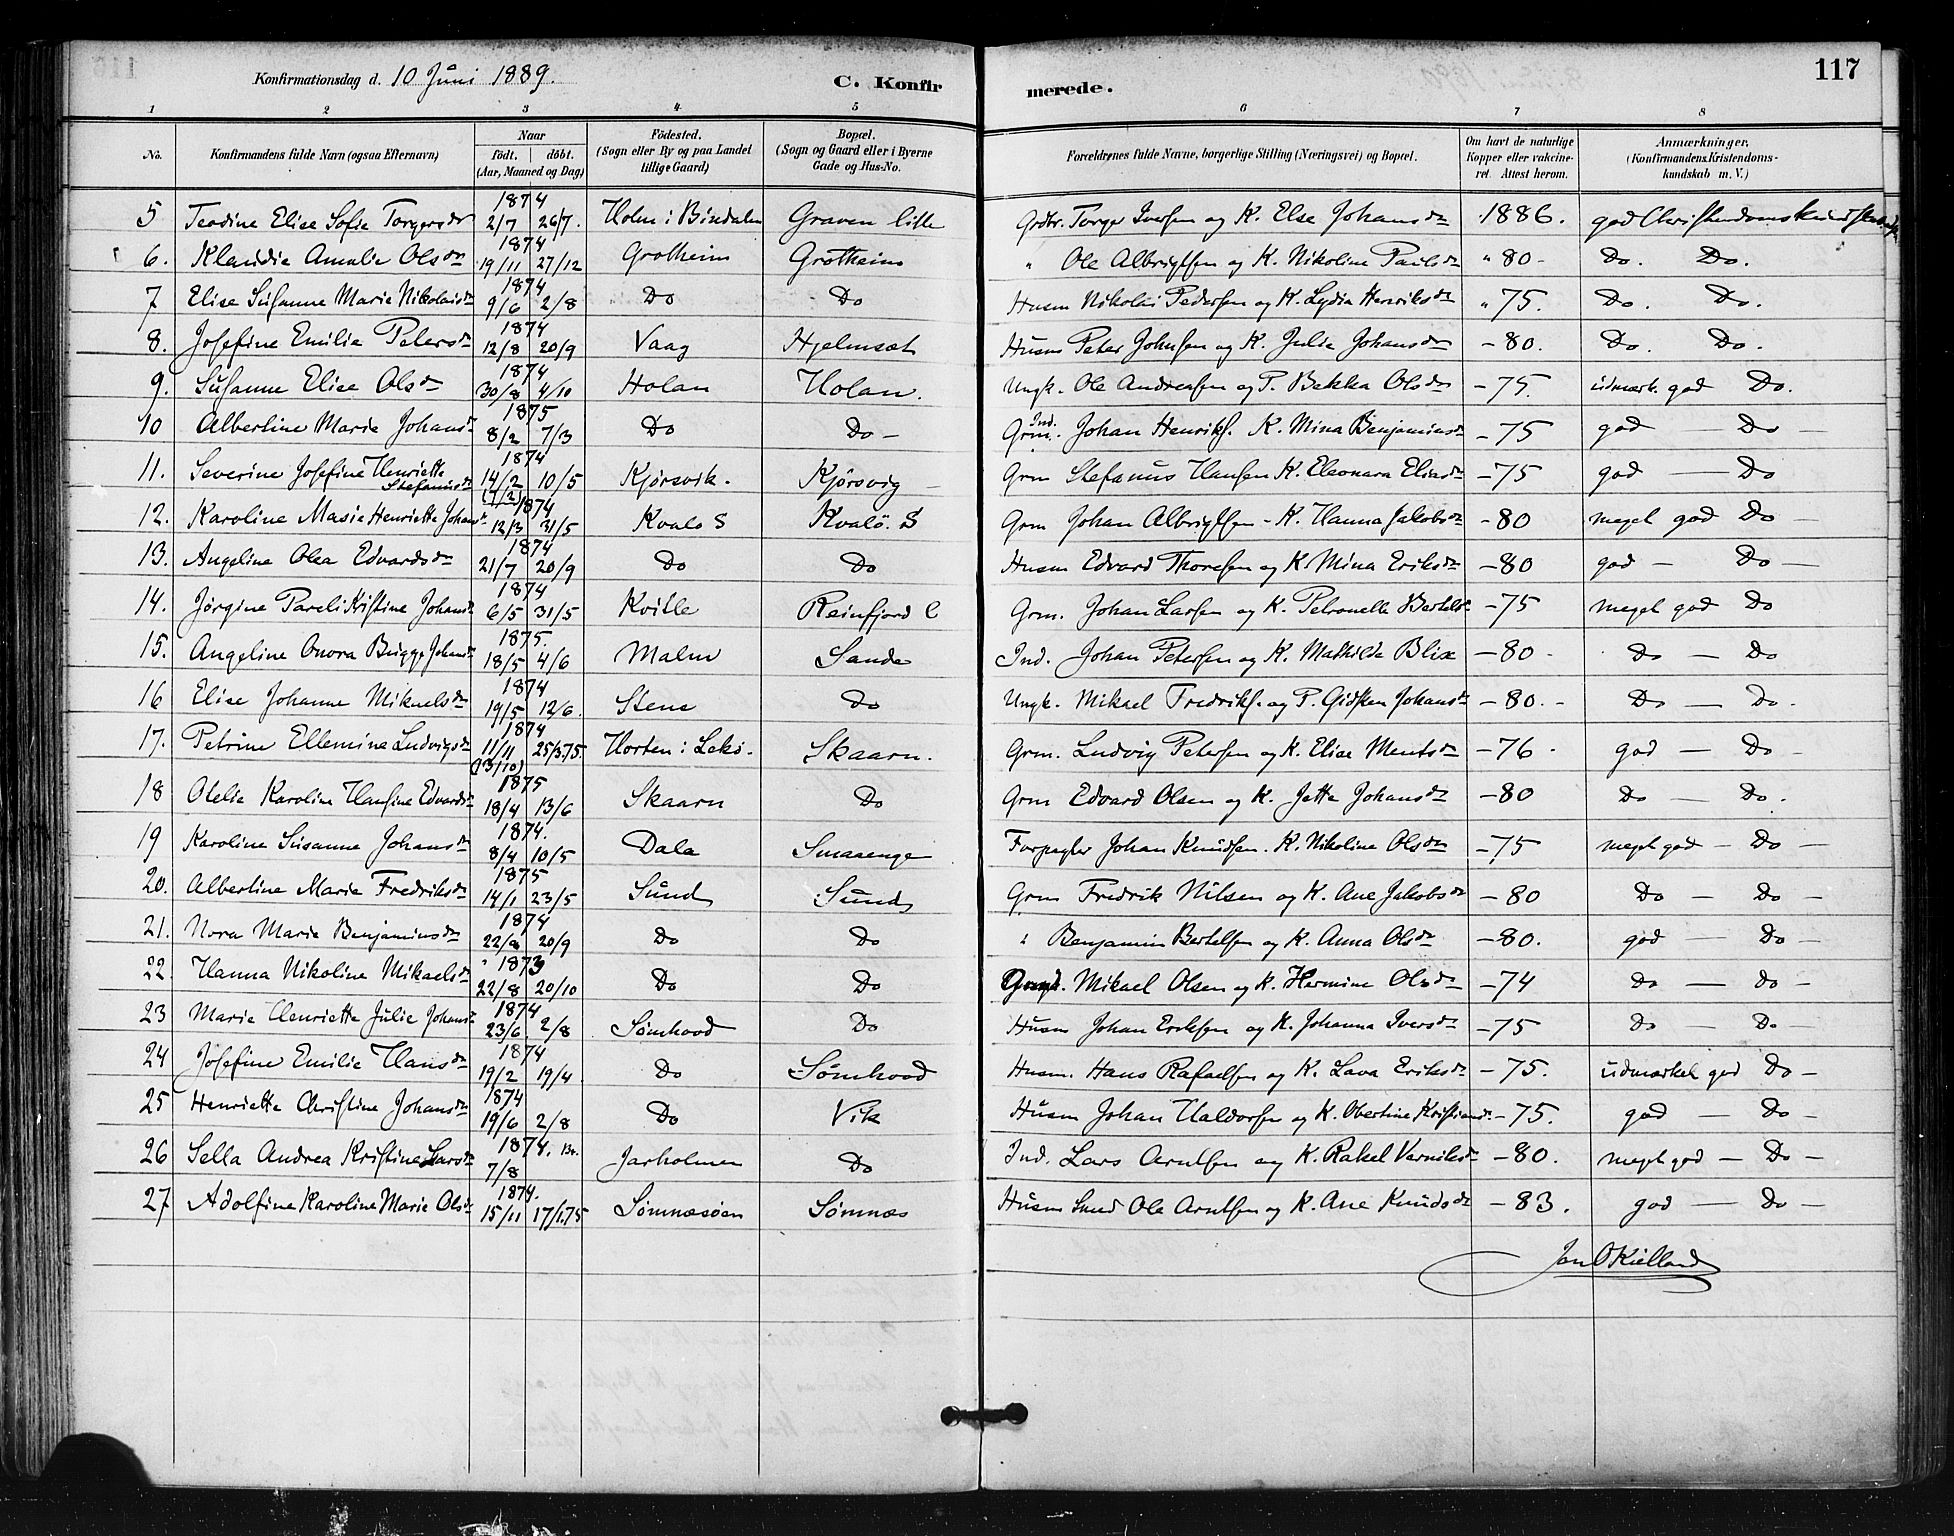 117
Konfirmationsdag d. 10 Juni 1889. C. Konfirmerede.
1 2 3 4 5 6 7 8
No. Konfirmandens fulde Navn (ogsaa Efternavn) Naar födt. döbt. (Aar, Maaned og Dag) Födested. (Sogn eller By og paa Landet tillige Gaard) Bopæl. (Sogn og Gaard eller i Byerne Gade og Hus-No. Forældrenes fulde Navne, borgerlige Stilling (Næringsvei) og Bopæl. Om havt de naturlige Kopper eller vakcineret. Attest herom. Anmærkninger. (Konfirmandens Kristendomskundskab m. V.)
5 Teodine Elise Sofie Torgersdr 1874 2/7 26/7. Holm i Bindalen Graven lille Torger Iversen og K. Else Johansdr 1886. god Christendomskundskab
6. Klaudie Amalie Olsdr 1874 19/11 27/12 Grotheim Grotheim " Ole Albrigtsen og K. Nikoline Paulsdr " 80 - Do. Do.
7 Elise Susanne Marie Nikolaisdr 1874 9/6 2/8 Do Do Husm Nikolai Pedersen og K. Lydia Henriksdr " 75. Do. Do.
8. Josefine Emilie Petersdr 1874 12/8 20/9 Vaag Hjelmset Husm Peter Johnsen og K. Julie Johansdr - 80. Do. Do.
9. Susanne Elise Olsdr 1874 30/8 4/10 Holan Holan. Ungk. Ole Andreasen og P. Bekka Olsdr - 75. udmærk. god Do.
10 Albertine Marie Johansdr 1875 8/2 7/3 Do Do - Ind. Grm. Johan Henriks. K. Mina Benjaminsdr - 75 god - Do -
11. Severine Josefine Henriette Stefanusdr 1874 14/2 10/5 (7/2) Kjörsvik. Kjörsvig - Grm Stefanus Hansen K. Eleonara Eliasdr - 75 god - Do
12. Karoline Masie Henriette Johansdr 1874 12/3 31/5 Kvalo S Kvalö. S Grm Johan Albrigtsen - K. Hanna Jakobsdr - 80 meget god Do -
13. Angeline Olea Edvardsdr 1874 21/7 20/9 Do Do Husm Edvard Thoresen og K. Mina Eriksdr - 80 god - Do -
14. Jörgine Pareli Kristine Johansdr 1874 6/5 31/5 Kvitle Reinfjord Grm. Johan Larsen og K. Petronelle Bertelsdr - 75 meget god Do
15. Angeline Onora Brigge Johansdr 1875. 18/5 4/6 Malm Sande Ind. Johan Petersen og K. Mathilde Blix - 80 - Do - Do
16 Elise Johanne Mikaelsdr 1874 19/5 12/6. Stene Do Ungk. Mikael Fredriks. og P. Gidsken Johansdr - 80. - Do - Do.
17. Petrine Ellemine Ludvigsdr 1874 11/11 25/3.75. (13/10) Horten i Lekö. Skaarn. Grm. Ludvig Petersen og K. Elise Mentsdr - 76 - god - Do -
18 Olelie Karoline Hansine Edvardsdr 1875 18/4 13/6 Skaarn Do Grm Edvard Olsen og K. Jette Johansdr - 80 Do - Do.
19 Karoline Susanne Johansdr 1874. 8/4 10/5 Dale Smaaenge Forpagter Johan Knudsen. K. Nikoline Olsdr - 75 meget god - Do -
20. Albertine Marie Fredriksdr 1875 14/1 23/5 Sund Sund Grm Fredrik Nilsen og K. Ane Jakobsdr - 80 Do - Do -
21. Nora Marie Benjaminsdr 1874 22/8 20/9 Do Do " Benjamin Bertelsen og K. Anna Olsdr - 80. god - Do -
22. Hanna Nikoline Mikaelsdr 1873 22/8 20/10 Do Do Mikael Olsen og K. Hermine Olsdr - 74 Do - Do -
23 Marie Henriette Julie Johansdr 1874 23/6. 2/8 Sömhovd Do Husm Johan Eriksen og K. Johanna Iversdr - 75 Do - Do -
24 Josefine Emilie Hansdr 1874 19/2 19/4. Do Sömhovd Husm. Hans Rafaelsen og K. Lava Eriksdr - 75. udmærket god Do -
25 Henriette Christine Johansdr 1874 19/6 2/8 Do Vik Husm Johan Haldorsen og K. Obertine Kristiansdr. - 75. god - Do -
26 Sella Andrea Kristine Larsdr 1874. 7/8 Jarholmen Do Ind. Lars Arntsen og K. Rakel Verniksdr - 80. meget god - Do -
27 Adolfine Karoline Marie Olsdr 1874. 15/11 17/1.75 Sömnæsöen Sömnæs Husm Smed Ole Arntsen og K. Ane Knudsdr - 83. god - Do -
Jan O Kielland